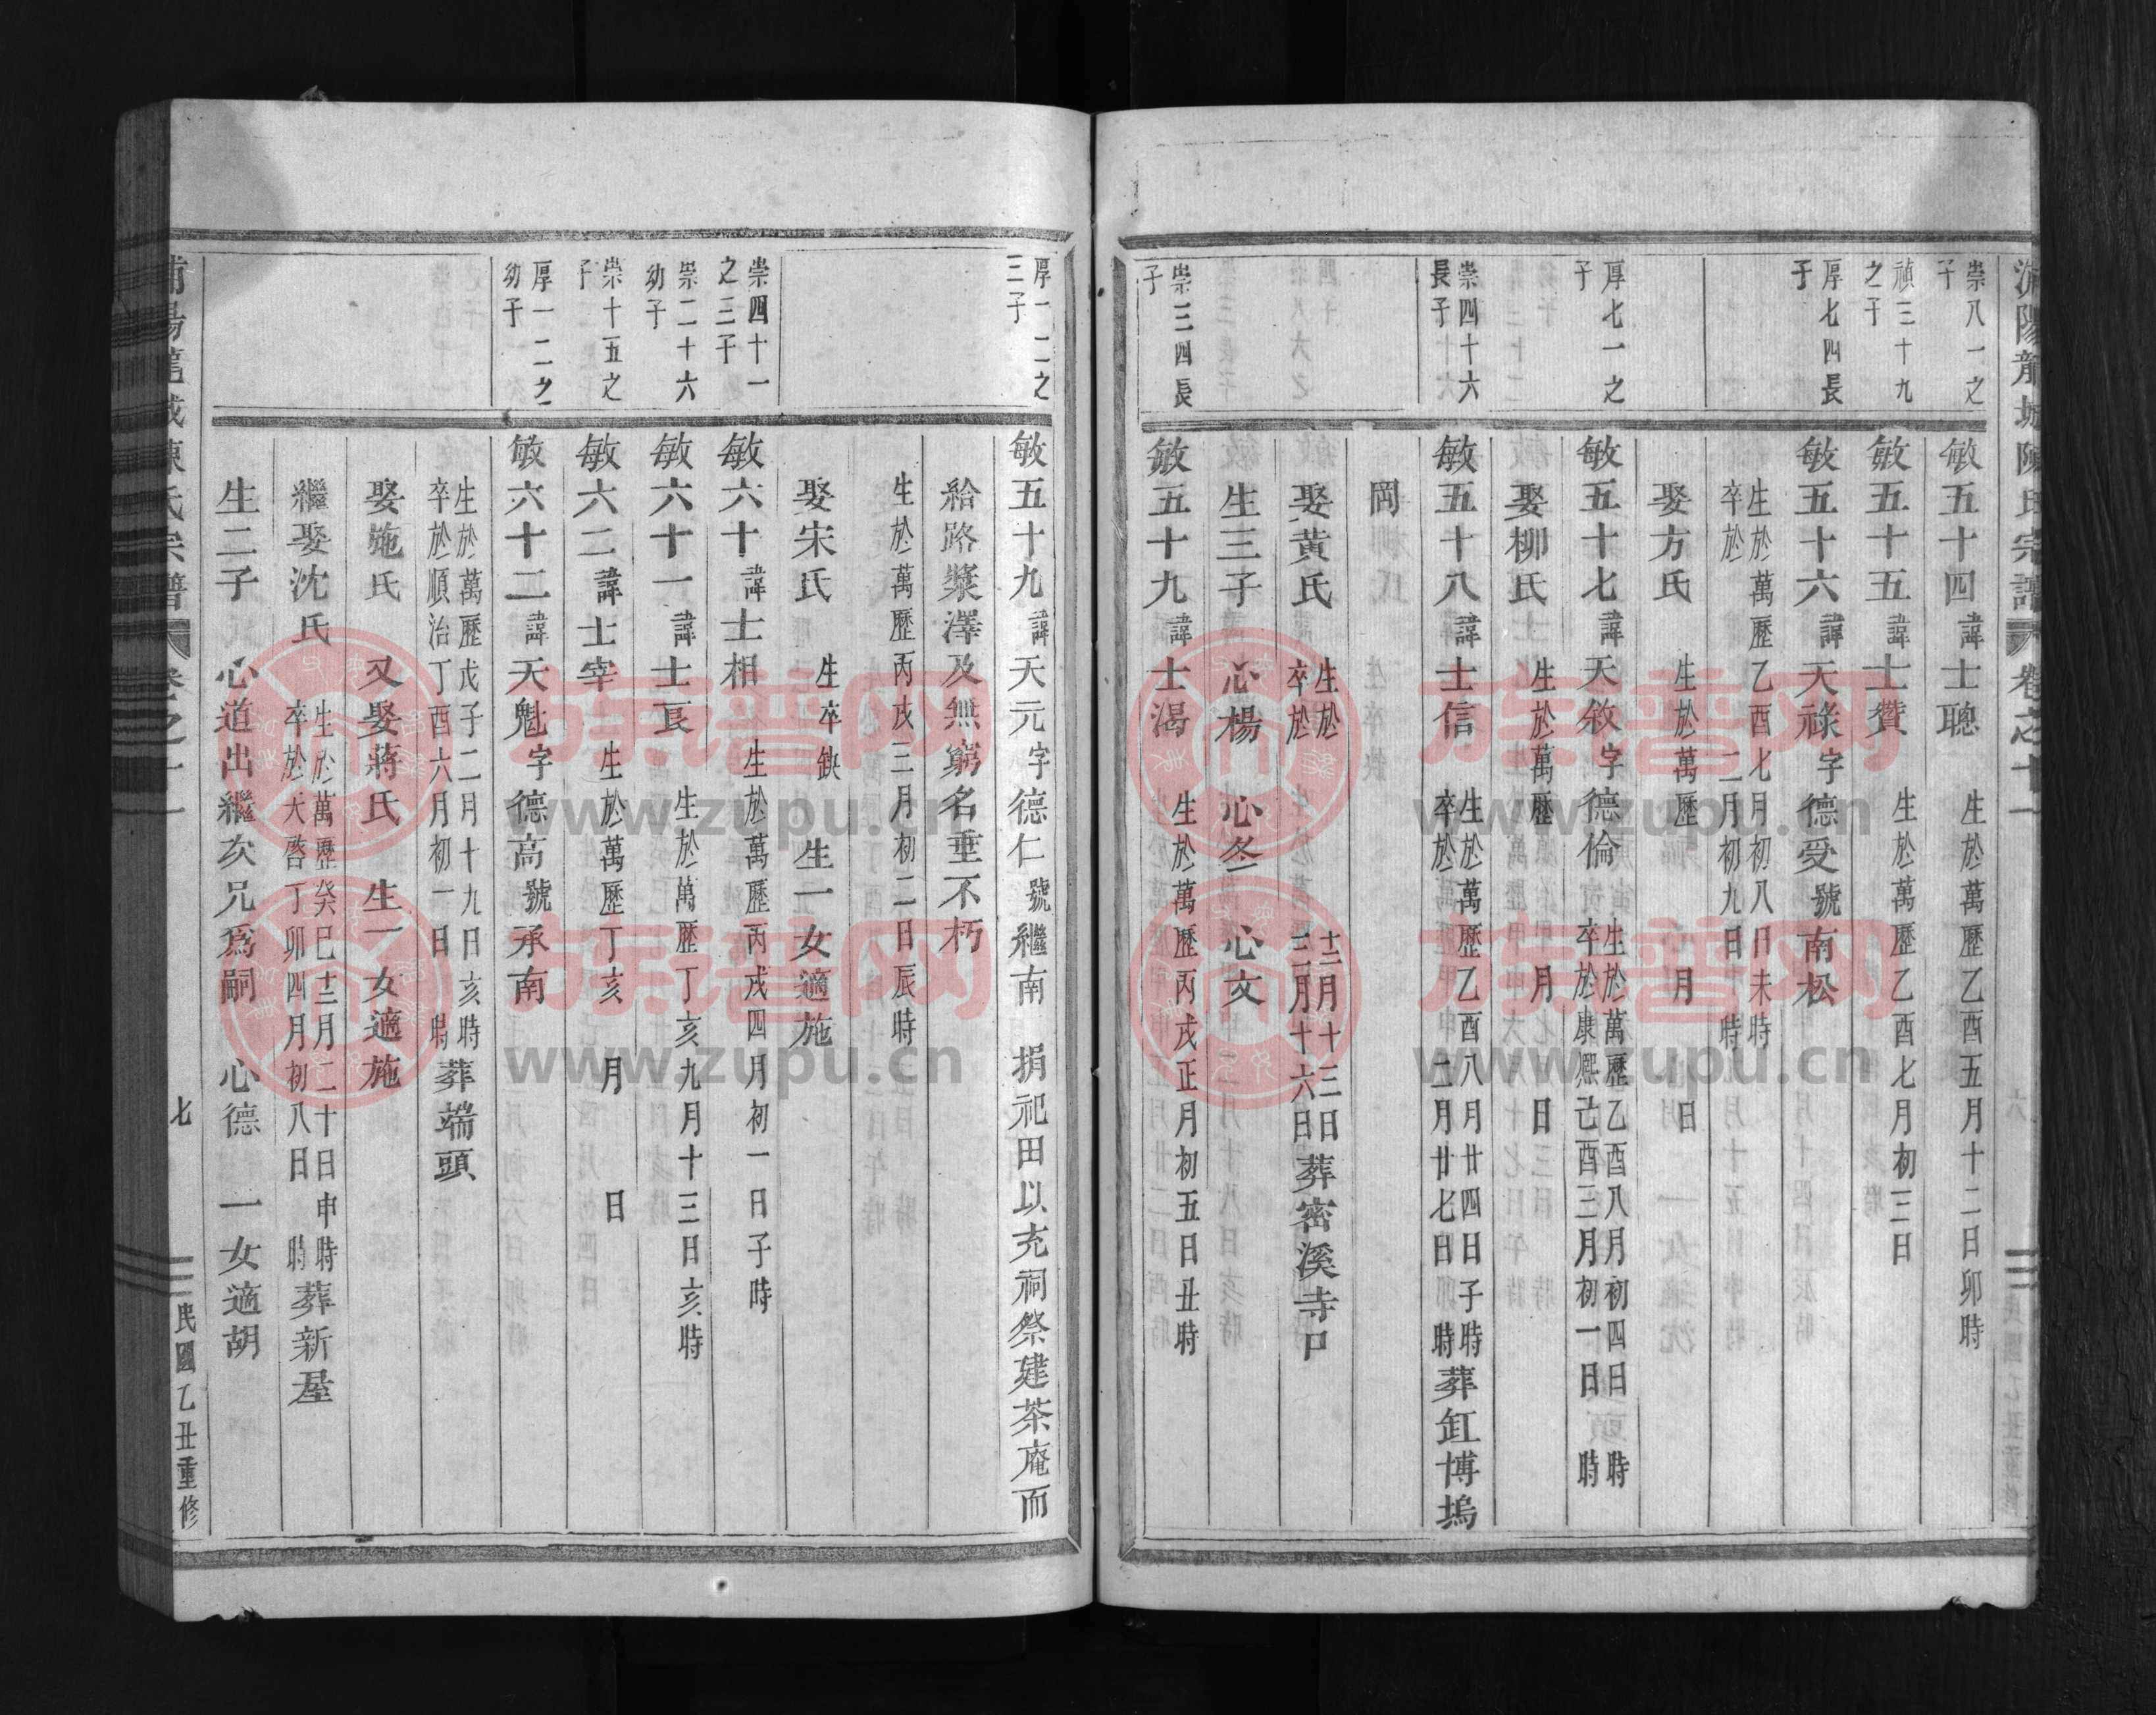 浦陽龍城陳氏宗譜 卷之十一
崇八一之
子
敏五十四諱士聰 生於萬歷乙酉五月十二日卯時
禎三十九
之子
敏五十五諱士贊 生於萬歷乙酉七月初三日
厚七四長
子
敏五十六諱天祿字德受號南松
生於萬歷乙酉七月初八日未時
卒於 二月初九日 時
娶方氏 生於萬歷 月 日
厚七一之
子
敏五十七諱天敘字德倫 生於萬歷乙酉八月初四日 時
卒於康熙己酉三月初一日 時
娶柳氏 生於萬歷 月 日
崇四十六
長子
敏五十八諱士信 生於萬歷乙酉八月廿四日子時
卒於 二月廿七日 時葬缸博塢
岡
娶黃氏 生於 十二月十三日
卒於 三月十六日葬密溪寺口
生三子 心楊 心冬 心文
崇三四長
子
敏五十九諱士渴 生於萬歷丙戌正月初五日丑時
厚一二之
三子
敏五十九諱天元字德仁號繼南 捐祀田以充祠祭建茶庵而
給路漿澤及無窮名垂不朽
生於萬歷丙戌三月初二日辰時
娶宋氏 生卒缺 生一女適施
崇四十一
之三子
敏六十諱士相 生於萬歷丙戌四月初一日子時
崇二十六
幼子
敏六十一諱士良 生於萬歷丁亥九月十三日亥時
崇十五之
子
敏六二諱士宰 生於萬歷丁亥 月 日
厚一二之
幼子
敏六十二諱天魁字德高號承南
生於萬歷戊子二月十九日亥時
卒於順治丁酉六月初一日 時葬端頭
娶施氏 又娶蔣氏 生一女適施
繼娶沈氏 生於萬歷癸巳十二月二十日申時
卒於天啓丁卯四月初八日 時葬新屋
生二子 心道出繼次兄爲嗣 心德 一女適胡
浦陽龍城陳氏宗譜 卷之十一 七 民國乙丑重修
族谱网
www.zupu.cn
族谱网
www.zupu.cn
族谱网
www.zupu.cn
族谱网
www.zupu.cn